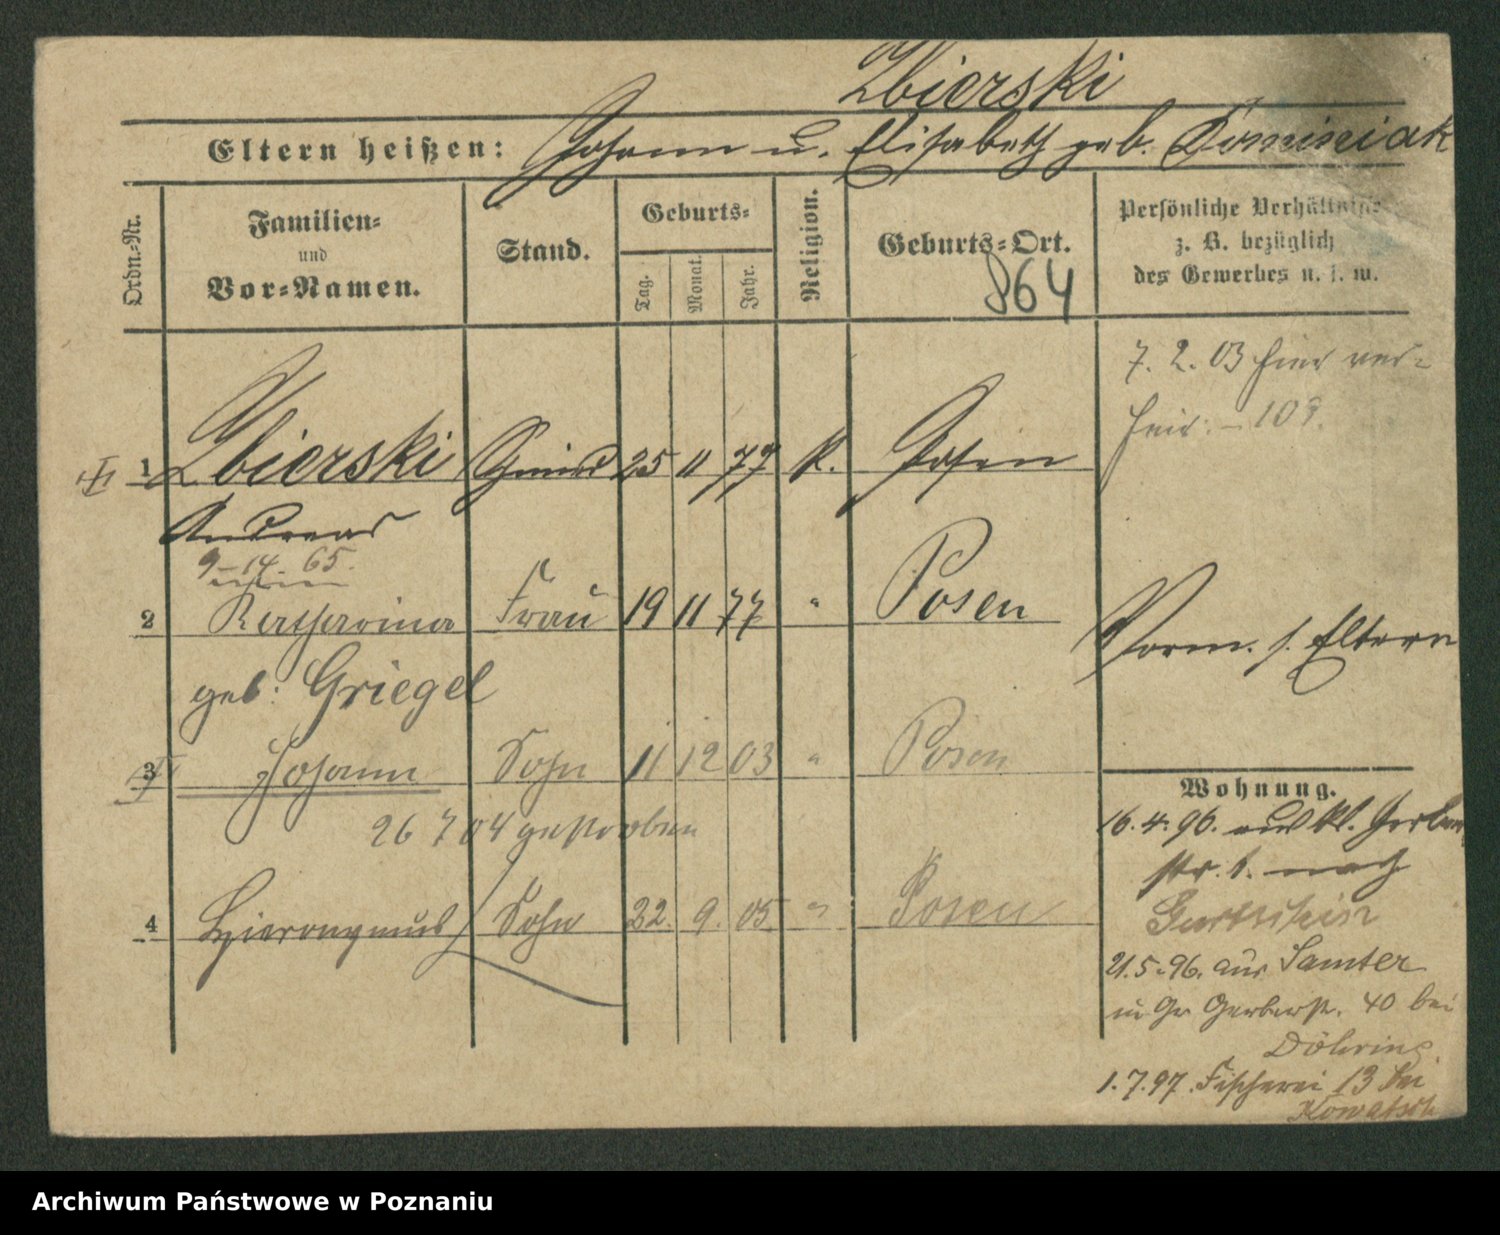 Zbierski
Eltern heißen: Johann u. Elisabeth geb. Dominiak
Ordn.-Nr.
Familien-
und
Vor-Namen.
Stand.
Geburts-
Tag.
Monat.
Jahr.
Religion.
Geburts-Ort.
864
Persönliche Verhältnisse
z. B. bezüglich
des Gewerbes u. s. w.
7. 2. 03 hier ver-
heir. - 103.
1 Zbierski Schmied 25 11 77 k. Posen
Andreas
9-14. 65.
2 Katharina Frau 19 11 77 " Posen
geb: Griegel
Vorm. s. Eltern
3 Johann Sohn 11 12 03 " Posen
26 7 04 gestorben
4 Hieronymus Sohn 22. 9. 05 " Posen
Wohnung.
16. 4. 96. aus kl. Gerber
str. 6. nach
21.5.96. aus Samter
in Gr Gerberstr. 40 bei
Döhring.
1.7.97. Fischerei 13 bei
Kowatsch